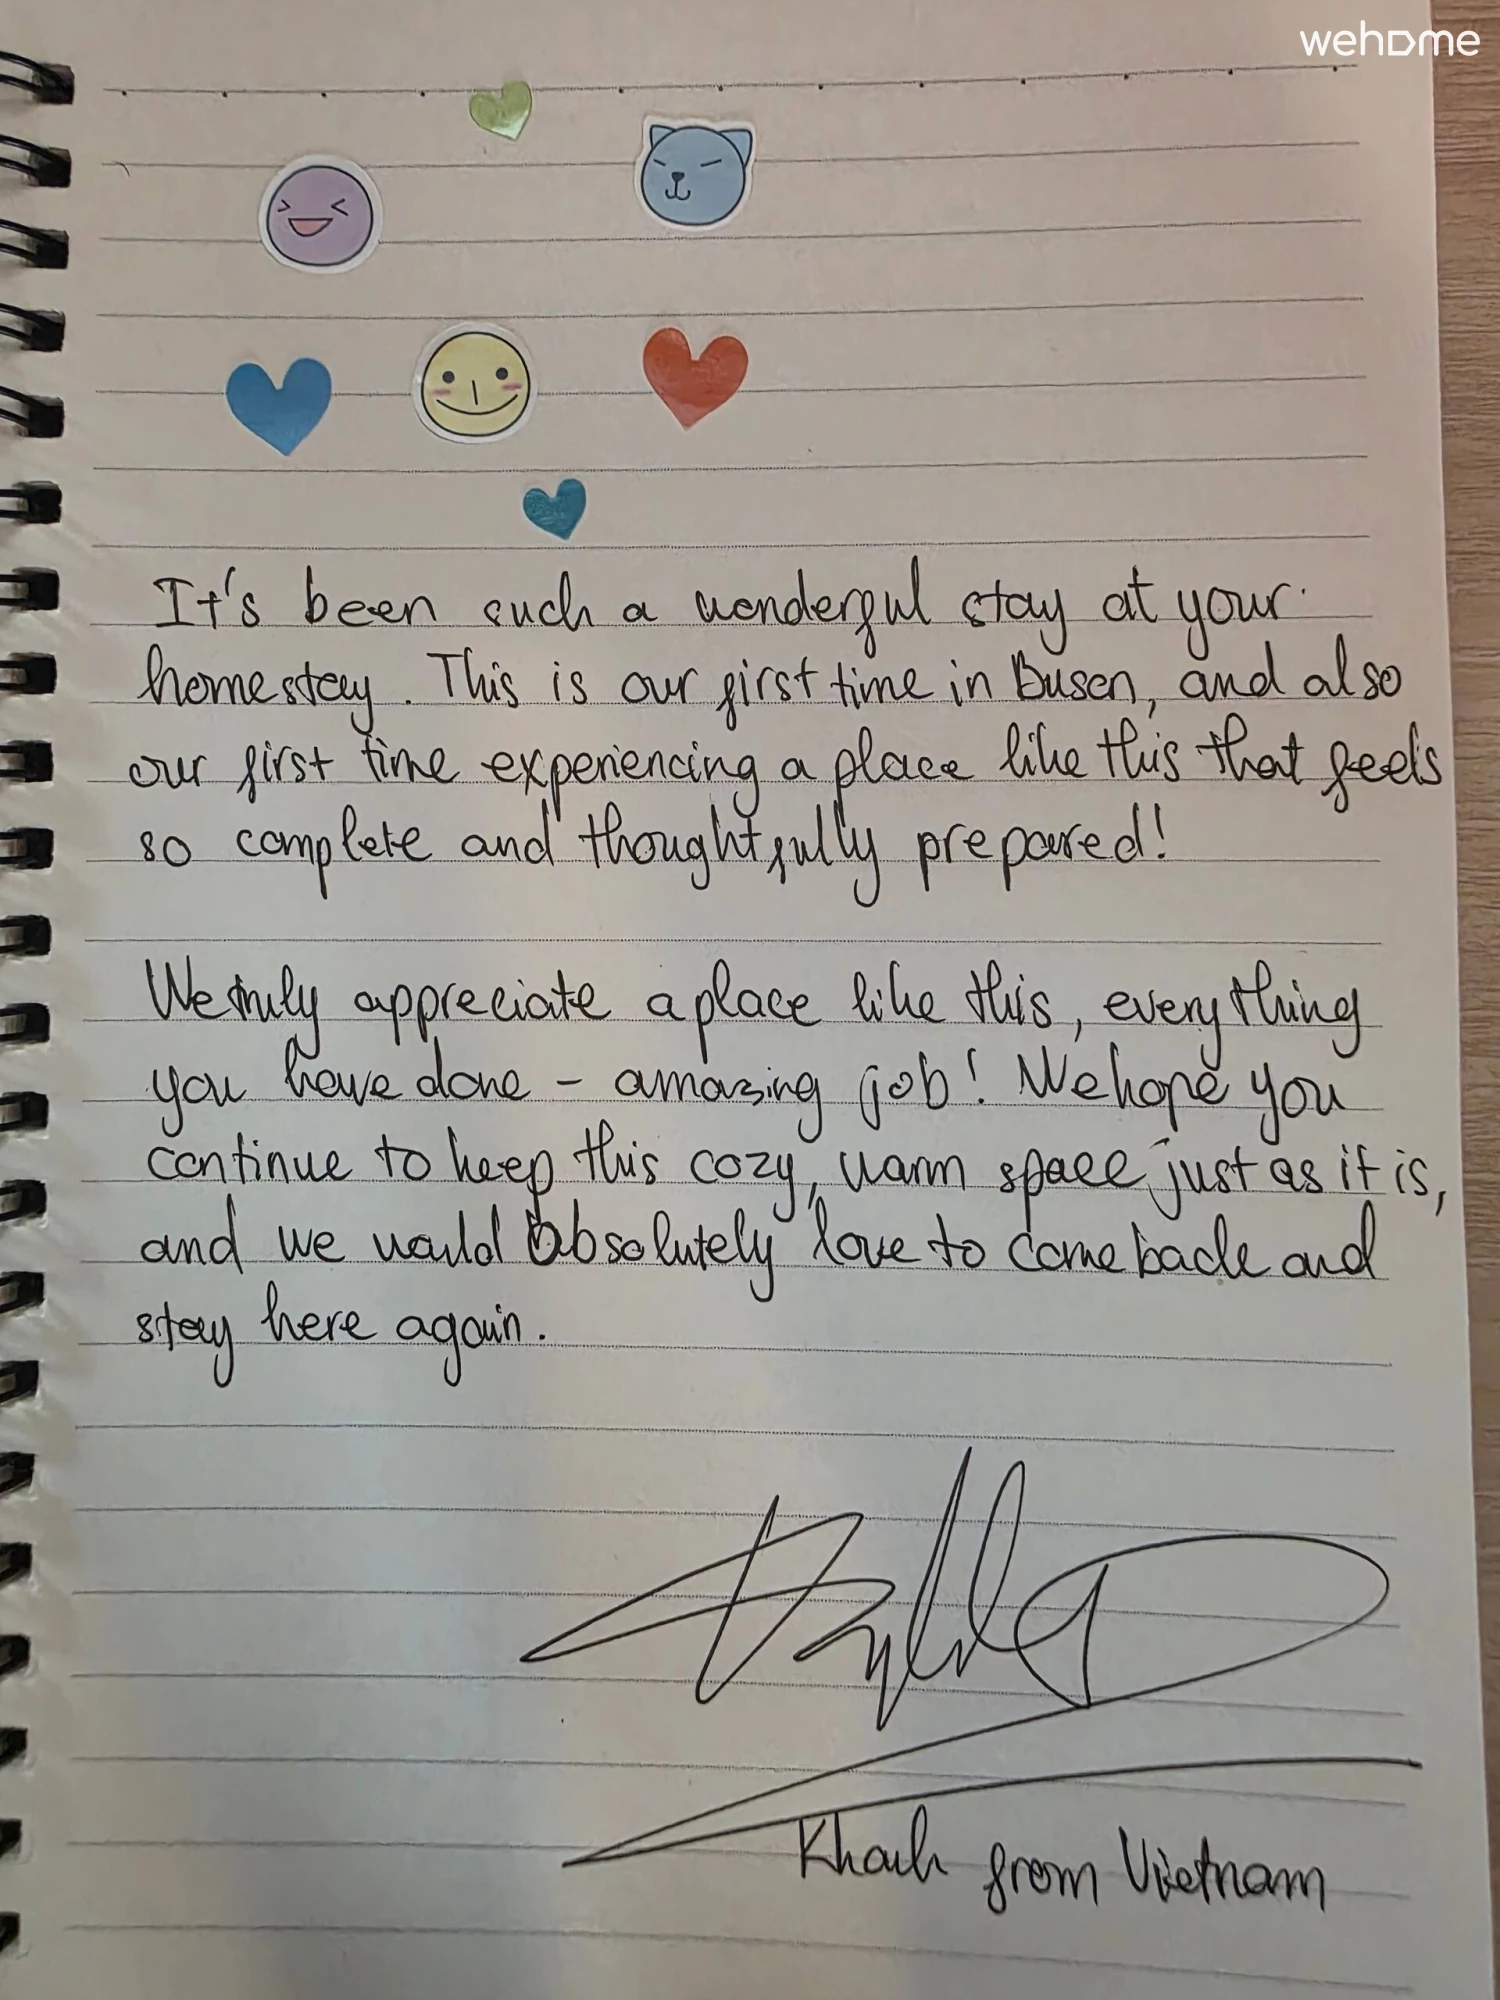 wehome
It's been such a wonderful stay at your
homestay. This is our first time in Busan, and also
our first time experiencing a place like this that feels
so complete and thoughtfully prepared!
We truly appreciate a place like this, everything
you have done - amazing job! We hope you
continue to keep this cozy, warm space just as it is,
and we would absolutely love to come back and
stay here again.
Khanh from Vietnam